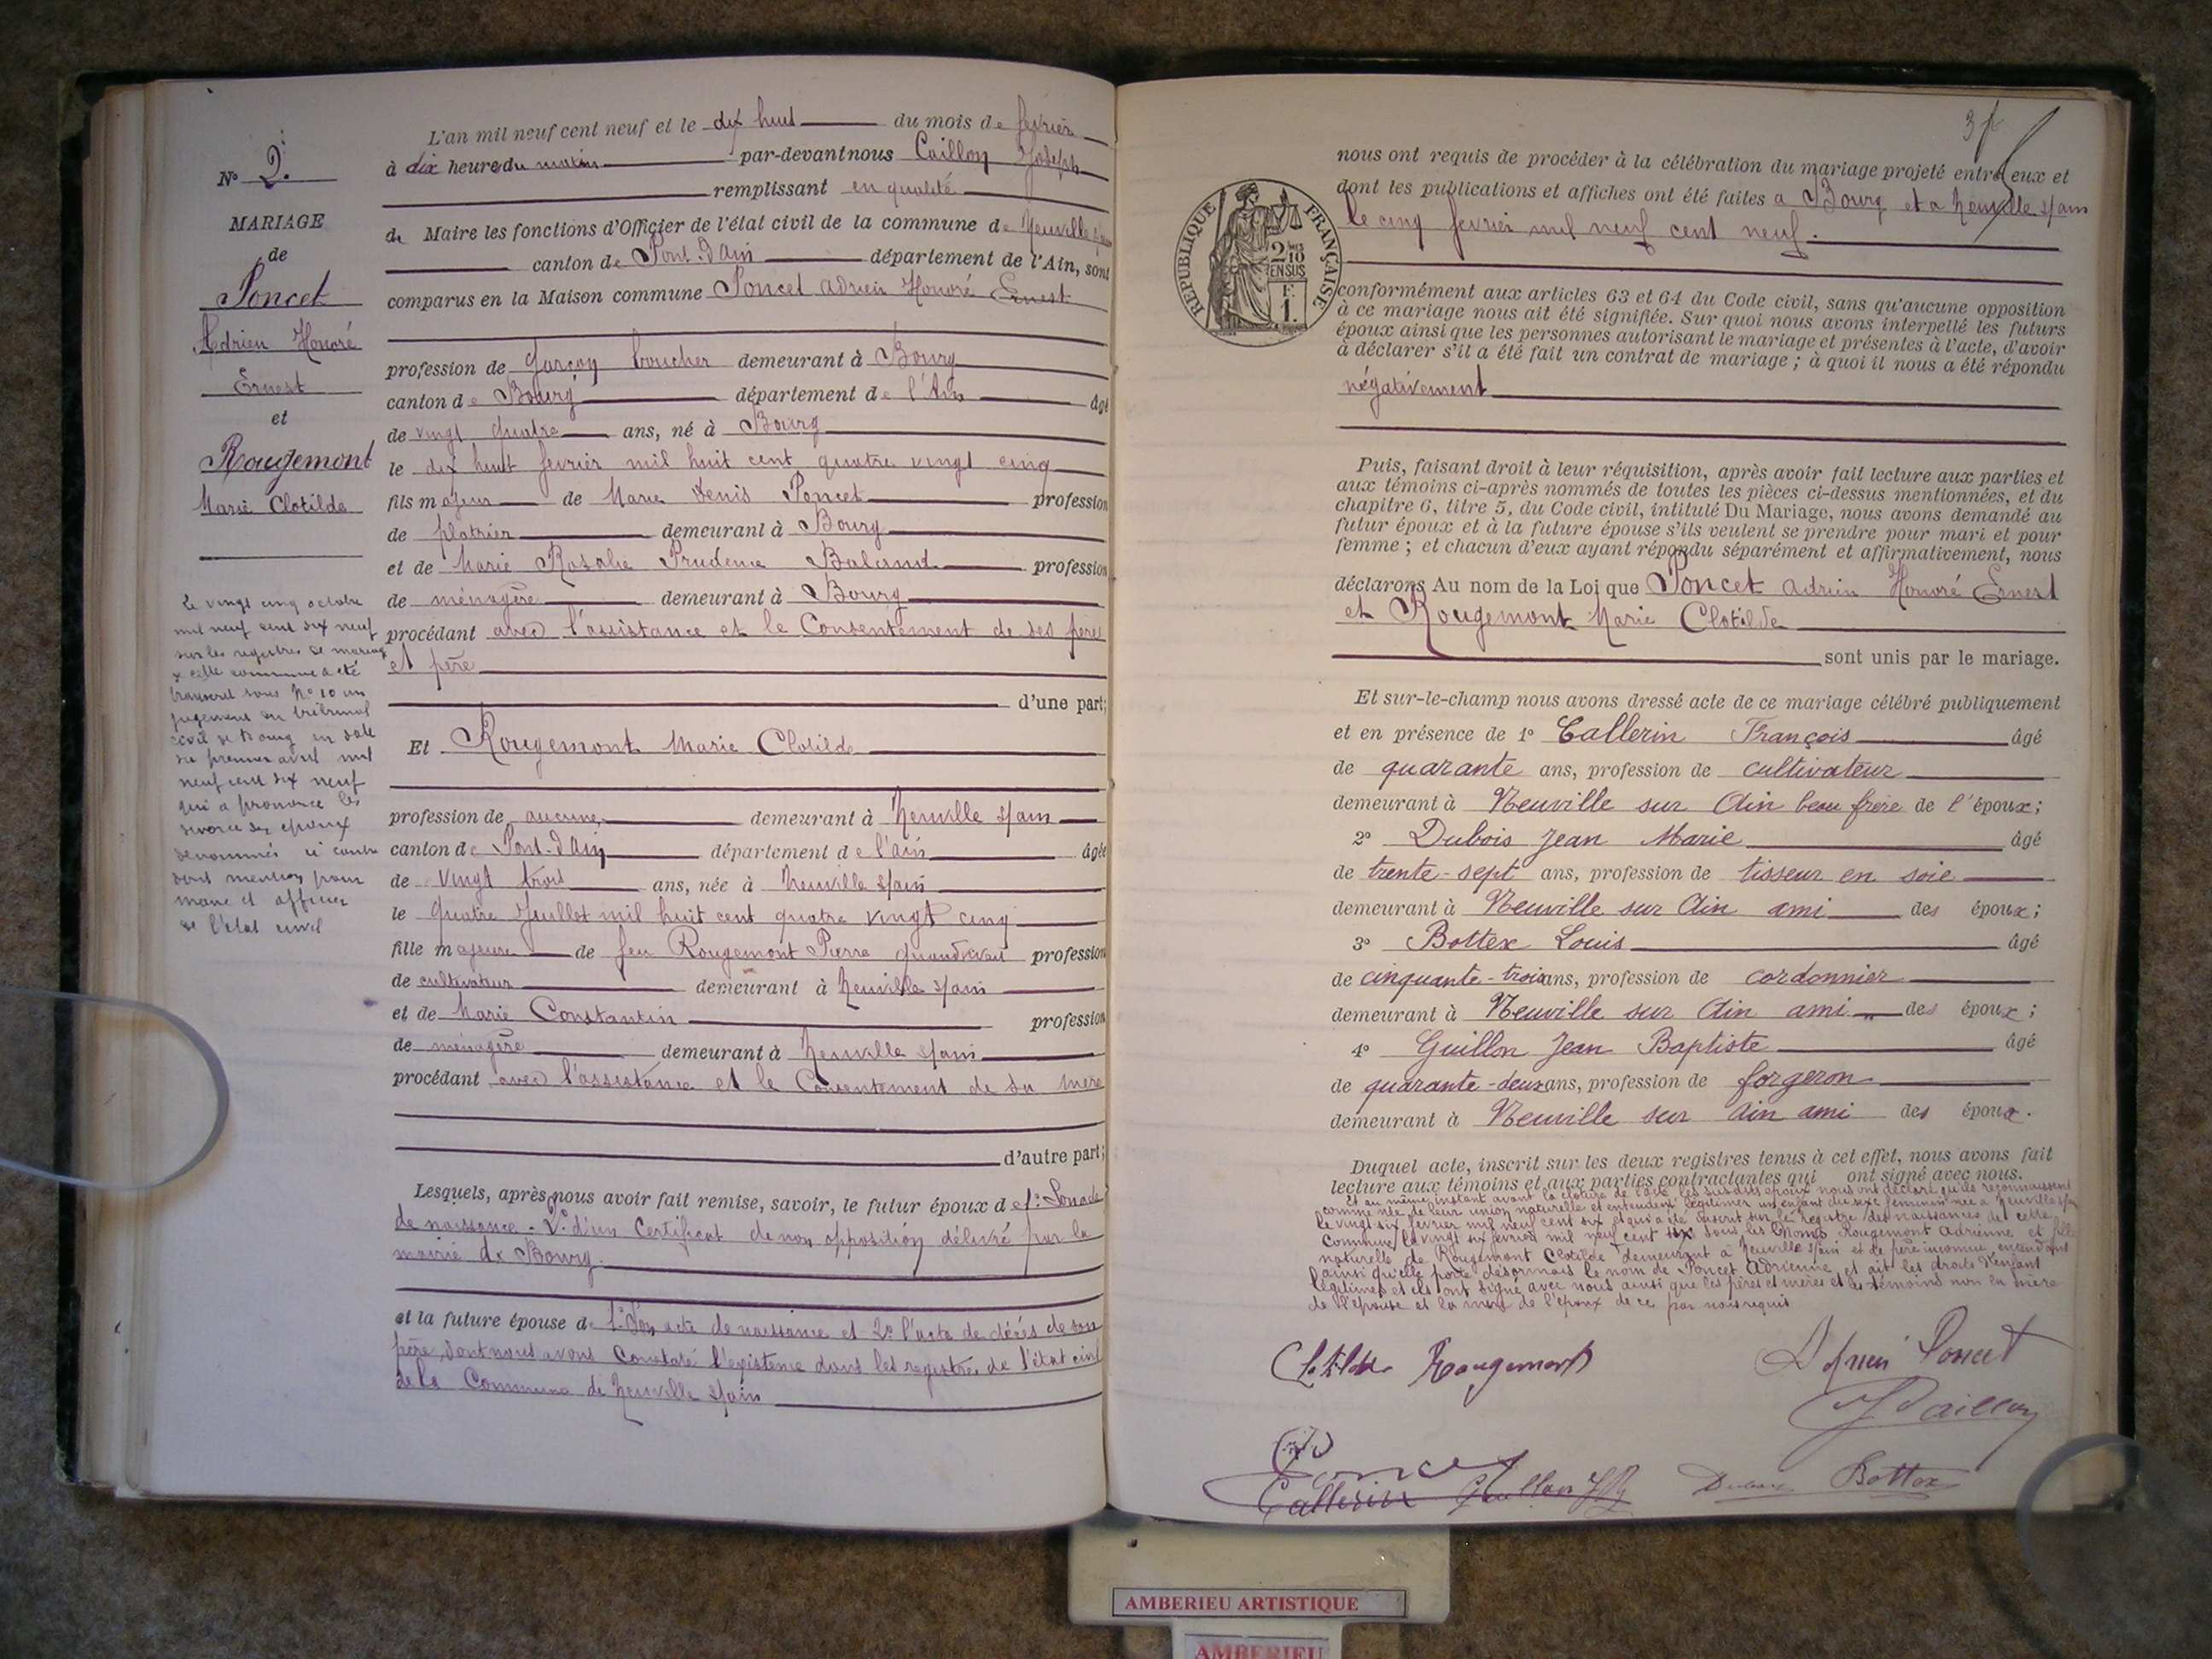 N° 2.
MARIAGE
de
Poncet
Adrien Honoré
Ernest
et
Rougemont
Marie Clotilde
Le vingt cinq octobre
mil neuf cent dix neuf
sur les registres de mariage
de cette commune a été
transcrit sous N° 10 un
jugement du tribunal
civil de Bourg en date
du premier avril mil
neuf cent dix neuf
qui a prononcé le
divorce des époux
dénommés ci contre
dont mention par
maire et officier
de l'état civil
L'an mil neuf cent neuf et le dix huit du mois de février
à dix heure du matin par-devant nous Caillon Joseph
remplissant en qualité
de Maire les fonctions d'Officier de l'état civil de la commune de Neuville s/ain
canton de Pont-d'Ain département de l'Ain, sont
comparus en la Maison commune Poncet Adrien Honoré Ernest
profession de Garçon boucher demeurant à Bourg
canton de Bourg département de l'Ain âgé
de vingt quatre ans, né à Bourg
le dix huit fevrier mil huit cent quatre vingt cinq
fils majeur de Marie Denis Poncet profession
de platrier demeurant à Bourg
et de Marie Rosalie Prudence profession
de ménagère demeurant à Bourg
procédant avec l'assistance et le Consentement de ses père
et père
d'une part;
Et Rougemont Marie Clotilde
profession de aucune demeurant à Neuville s/ain
canton de Pont-d'Ain département de l'ain âgée
de vingt trois ans, née à Neuville s/ain
le quatre Juillet mil huit cent quatre vingt cinq
fille majeure de feu Rougemont Pierre quand vivait profession
de cultivateur demeurant à Neuville s/ain
et de Marie Constantin profession
de ménagère demeurant à Neuville s/ain
procédant avec l'assistance et le Consentement de sa mère
d'autre part;
Lesquels, après nous avoir fait remise, savoir, le futur époux de 1° Son acte
de naissance - 2° d'un Certificat de non opposition délivré par la
mairie de Bourg.
et la future épouse de 1° Son acte de naissance et 2° l'acte de décès de son
père, dont nous avons Constaté l'existence dans les registres de l'état civil
de la Commune de Neuville s/ain
3
nous ont requis de procéder à la célébration du mariage projeté entre eux et
dont les publications et affiches ont été faites a Bourg et a Neuville s/ain
le cinq fevrier mil neuf cent neuf.
RÉPUBLIQUE FRANÇAISE
2/10
EN SUS
F.
1.
conformément aux articles 63 et 64 du Code civil, sans qu'aucune opposition
à ce mariage nous ait été signifiée. Sur quoi nous avons interpellé les futurs
époux ainsi que les personnes autorisant le mariage et présentes à l'acte, d'avoir
à déclarer s'il a été fait un contrat de mariage ; à quoi il nous a été répondu
négativement
Puis, faisant droit à leur réquisition, après avoir fait lecture aux parties et
aux témoins ci-après nommés de toutes les pièces ci-dessus mentionnées, et du
chapitre 6, titre 5, du Code civil, intitulé Du Mariage, nous avons demandé au
futur époux et à la future épouse s'ils veulent se prendre pour mari et pour
femme ; et chacun d'eux ayant répondu séparément et affirmativement, nous
déclarons Au nom de la Loi que Poncet Adrien Honoré Ernest
et Rougemont Marie Clotilde
sont unis par le mariage.
Et sur-le-champ nous avons dressé acte de ce mariage célébré publiquement
et en présence de 1° Callerin François âgé
de quarante ans, profession de cultivateur
demeurant à Neuville sur Ain beau frère de l'époux;
2° Dubois Jean Marie âgé
de trente-sept ans, profession de tisseur en soie
demeurant à Neuville sur Ain ami des époux;
3° Bottex Louis âgé
de cinquante-trois ans, profession de cordonnier
demeurant à Neuville sur Ain ami des époux;
4° Guillon Jean Baptiste âgé
de quarante-deux ans, profession de forgeron
demeurant à Neuville sur Ain ami des époux.
Duquel acte, inscrit sur les deux registres tenus à cet effet, nous avons fait
lecture aux témoins et aux parties contractantes qui ont signé avec nous.
Et au même instant avant la cloture de l'acte les susdits époux nous ont déclaré qu'ils reconnaissent
comme née de leur union naturelle et entendent légitimer un enfant du sexe féminin née a Neuville s/ain
le vingt six fevrier mil neuf cent six et qui a été inscrit sur le registre des naissances de cette
Commune le vingt six fevrier mil neuf cent six sous les noms Rougemont Adrienne et fille
naturelle de Rougemont Clotilde demeurant à Neuville s/ain et de père inconnu, entendant
ainsi qu'elle porte désormais le nom de Poncet Adrienne et ait les droits d'enfant
légitimes et ils ont signé avec nous ainsi que les pères et mères et les témoins non la mère
de l'épouse et la mère de l'époux de ce par nous requis
Clotilde Rougemont
Adrien Poncet
J Caillon
Poncet
Callerin Guillon JB Dubois Bottex
AMBERIEU ARTISTIQUE
AMBERIEU